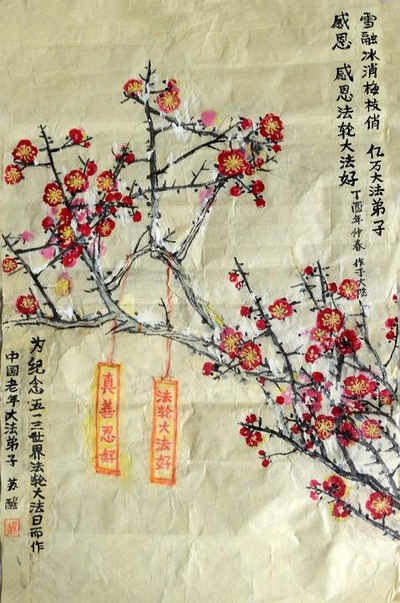 雪融冰消梅枝俏 亿万大法弟子
感恩 感恩法轮大法好
丁酉年仲春 作于大陆
真善忍好
法轮大法好
为纪念五一三世界法轮大法日而作
中国老年大法弟子 苏醒